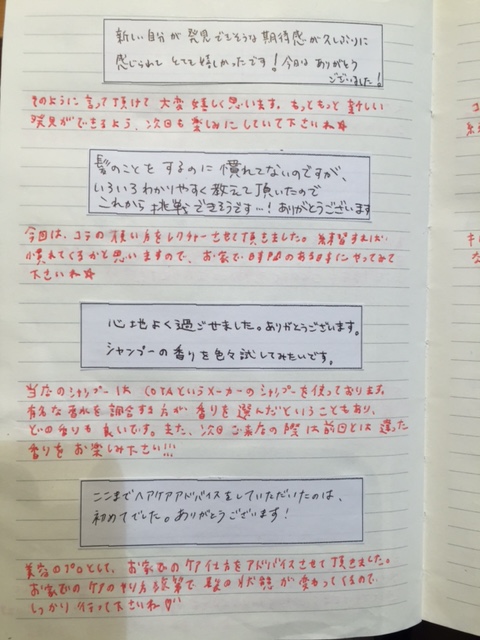 新しい自分が発見できそうな期待感が久しぶりに
感じられてとても嬉しかったです！今日はありがとう
ございました！
そのように言って頂けて大変嬉しく思います。もっともっと新しい
発見ができるよう、次回も楽しみにしていて下さいね☆
髪のことをするのに慣れてないのですが、
いろいろわかりやすく教えて頂いたので
これから挑戦できそうです…！ありがとうございます
今回は、コテの使い方をレクチャーさせて頂きました。練習すれば
慣れてくるかと思いますので、お家で時間のある時にやってみて
下さいね☆
心地よく過ごせました。ありがとうございます。
シャンプーの香りを色々試してみたいです。
当店のシャンプーは COTAというメーカーのシャンプーを使っております。
有名な香水を調合する方が香りを選んだということもあり、
どの香りも良いです。また、次回ご来店の際は前回とは違った
香りをお楽しみ下さい!!!
ここまでヘアケアアドバイスをしていただいたのは、
初めてでした。ありがとうございます！
美容のプロとして、お家でのケア仕方をアドバイスさせて頂きました。
お家でのケアのやり方次第で髪の状態が変わってくるので
しっかり行って下さいね